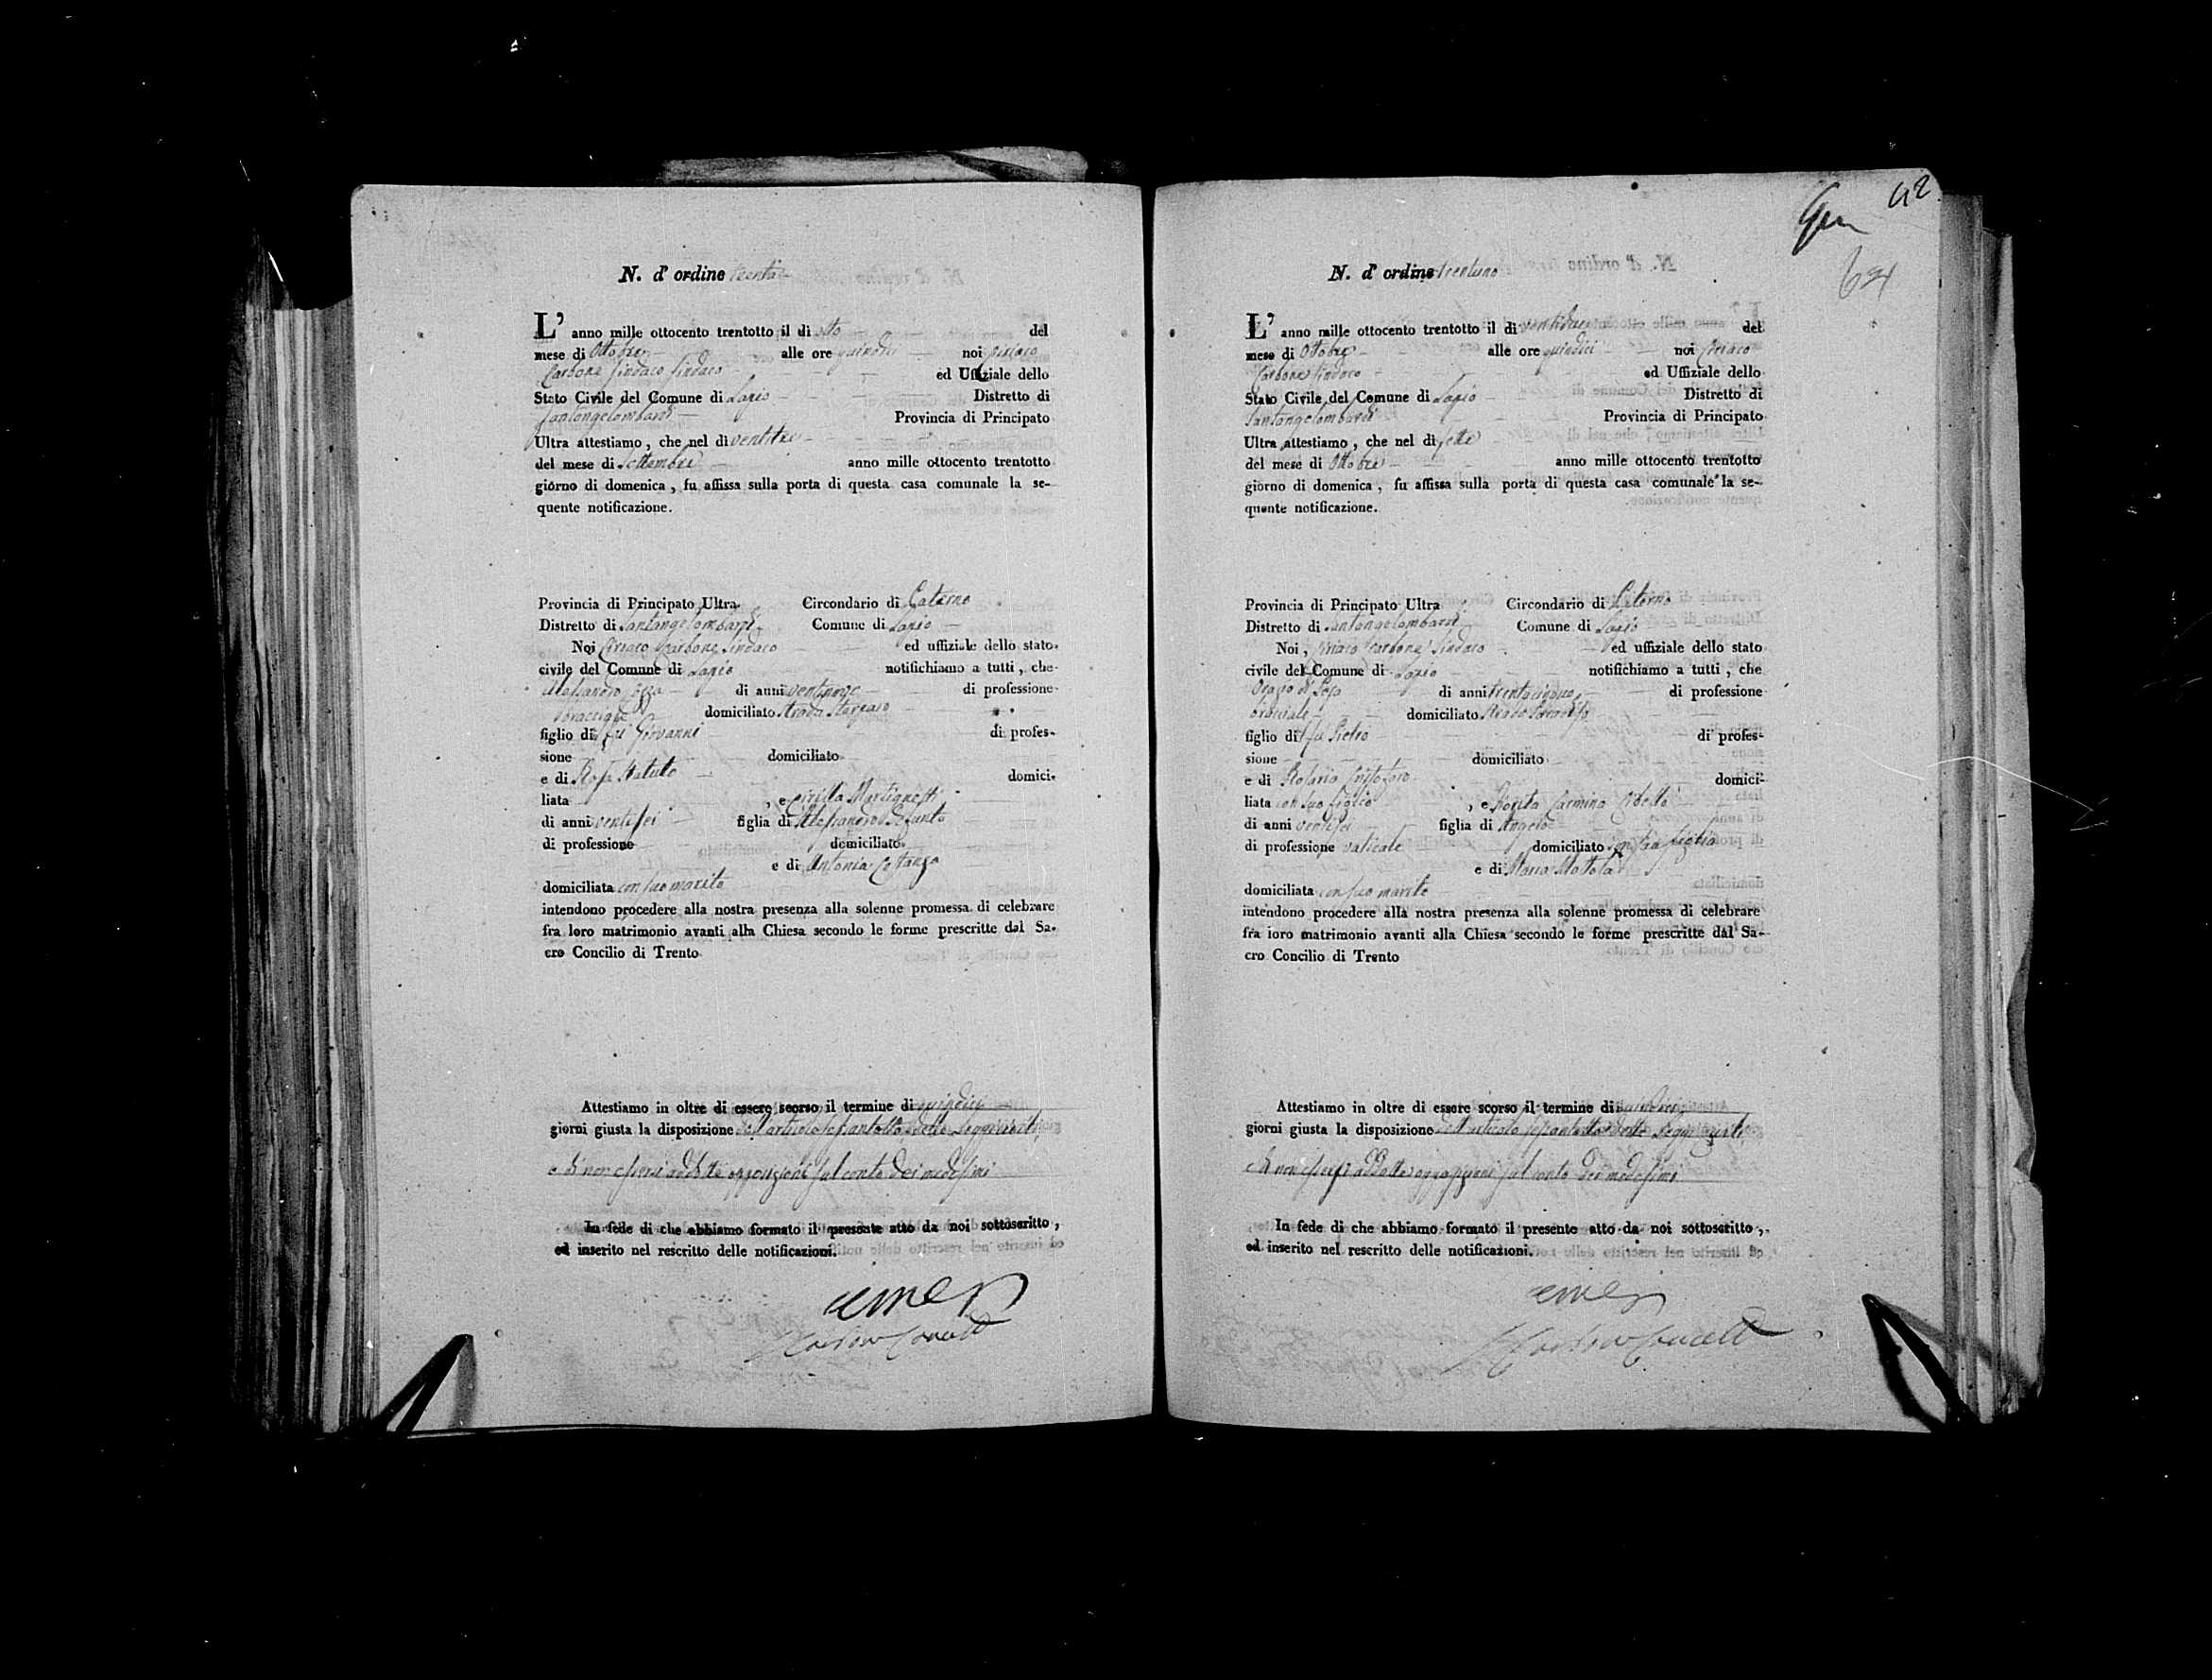 N. d' ordine trenta
L' anno mille ottocento trentotto il di otto del
mese di Ottobre alle ore quindici noi Ciriaco
Carbone Sindaco Sindaco ed Uffiziale dello
Stato Civile del Comune di Lapio Distretto di
Santangelombardi Provincia di Principato
Ultra attestiamo, che nel di ventitre
del mese di Settembre anno mille ottocento trentotto
giorno di domenica, fu affissa sulla porta di questa casa comunale la se-
quente notificazione.
Provincia di Principato Ultra Circondario di
Distretto di Santangelombardi Comune di Lapio
Noi Ciriaco Carbone Sindaco ed uffiziale dello stato
civile del Comune di Lapio notifichiamo a tutti, che
Alessandro di anni ventinove di professione
bracciale domiciliato Strada
figlio di fu Giovanni di profes-
sione domiciliato
e di Rosa Statuto domici-
liata , e Cirilla Martignetti
di anni ventisei figlia di Alessandro Defunto
di professione domiciliato
e di Antonia Costanza
domiciliata con suo marito
intendono procedere alla nostra presenza alla solenne promessa di celebrare
fra loro matrimonio avanti alla Chiesa secondo le forme prescritte dal Sa-
cro Concilio di Trento
Attestiamo in oltre di essere scorso il termine di quindici
giorni giusta la disposizione dell'articolo settantotto delle Leggi civili,
e di non essersi addotte opposizioni sul conto dei medesimi
In fede di che abbiamo formato il presente atto da noi sottoscritto,
ed inserito nel rescritto delle notificazioni.
42
64
N. d' ordine trentuno
L' anno mille ottocento trentotto il di ventidue del
mese di Ottobre alle ore quindici noi Ciriaco
Carbone Sindaco ed Uffiziale dello
Stato Civile del Comune di Lapio Distretto di
Santangelombardi Provincia di Principato
Ultra attestiamo, che nel di sette
del mese di Ottobre anno mille ottocento trentotto
giorno di domenica, fu affissa sulla porta di questa casa comunale la se-
quente notificazione.
Provincia di Principato Ultra Circondario di
Distretto di Santangelombardi Comune di Lapio
Noi, Ciriaco Carbone Sindaco ed uffiziale dello stato
civile del Comune di Lapio notifichiamo a tutti, che
Orazio di anni trentacinque di professione
bracciale domiciliato Strada
figlio di fu Pietro di profes-
sione domiciliato
e di Rosaria Cristofaro domici-
liata con suo figlio , e Fiorita Carmina
di anni ventisei figlia di Angelo
di professione vaticale domiciliato con sua figlia
e di Maria Mottola
domiciliata con suo marito
intendono procedere alla nostra presenza alla solenne promessa di celebrare
fra loro matrimonio avanti alla Chiesa secondo le forme prescritte dal Sa-
cro Concilio di Trento
Attestiamo in oltre di essere scorso il termine di quindici
giorni giusta la disposizione dell'articolo settantotto delle Leggi civili,
e di non essersi addotte opposizioni sul conto dei medesimi
In fede di che abbiamo formato il presente atto da noi sottoscritto,
ed inserito nel rescritto delle notificazioni.